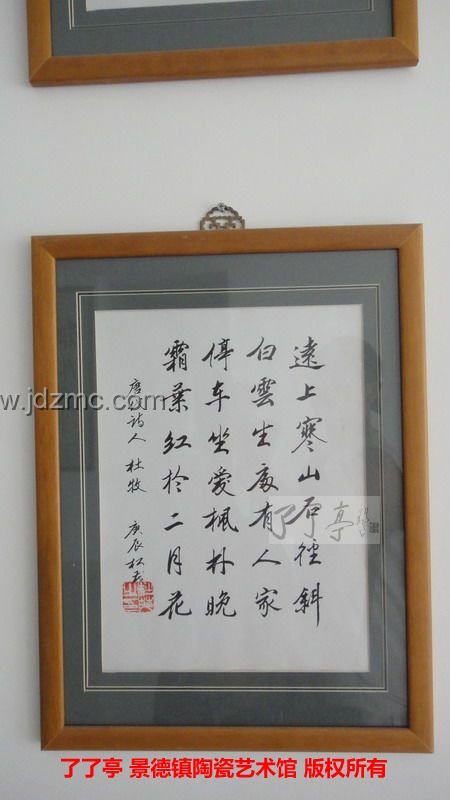 遠上寒山石徑斜
白雲生處有人家
停車坐愛楓林晚
霜葉紅於二月花
唐 詩人 杜牧 庚辰
www.jdzmc.com
了了亭
了了亭 景德镇陶瓷艺术馆 版权所有